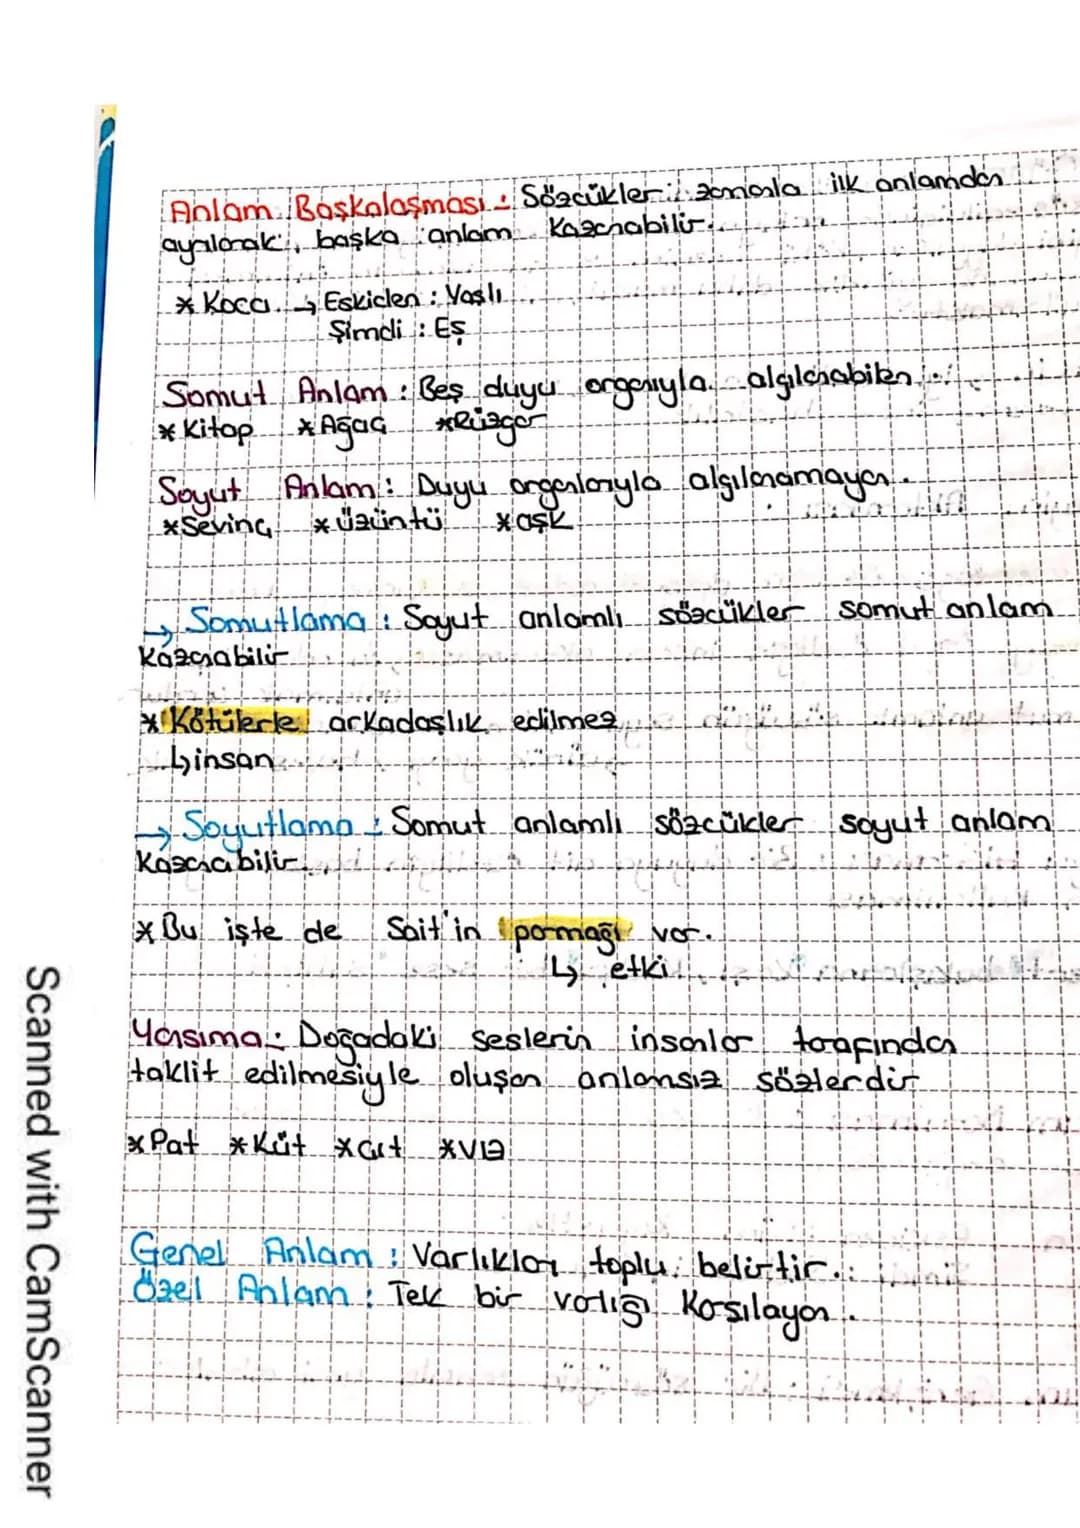 Anlam Başkalaşması : Sözcükler zamanla ilk anlamdan
ayrılarak, başka anlam kazanabilir.
* Koca → Eskiden : Yaşlı
Şimdi : Eş
Somut Anlam : Beş duyu organıyla algılanabilen
* Kitap * Ağaç * Rüzgar
Soyut Anlam : Duyu organlarıyla algılanamayan.
* Sevinç * üzüntü * aşk
→ Somutlama : Soyut anlamlı sözcükler somut anlam
kazanabilir
* Kötülerle arkadaşlık edilmez
↳ insan
→ Soyutlama : Somut anlamlı sözcükler soyut anlam
kazanabilir.
* Bu işte de Sait'in parmağı var.
↳ etki
Yansıma : Doğadaki seslerin insanlar tarafından
taklit edilmesiyle oluşan anlamsız sözlerdir
* Pat * Küt * Çıt * Vız
Genel Anlam : Varlıkları toplu belirtir.
Özel Anlam : Tek bir varlığı karşılayan.
Scanned with CamScanner